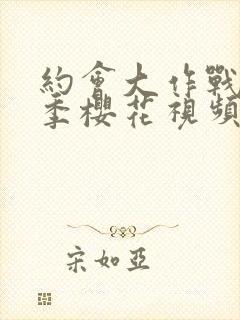 約會大作戰
季櫻花視頻
宋如亞